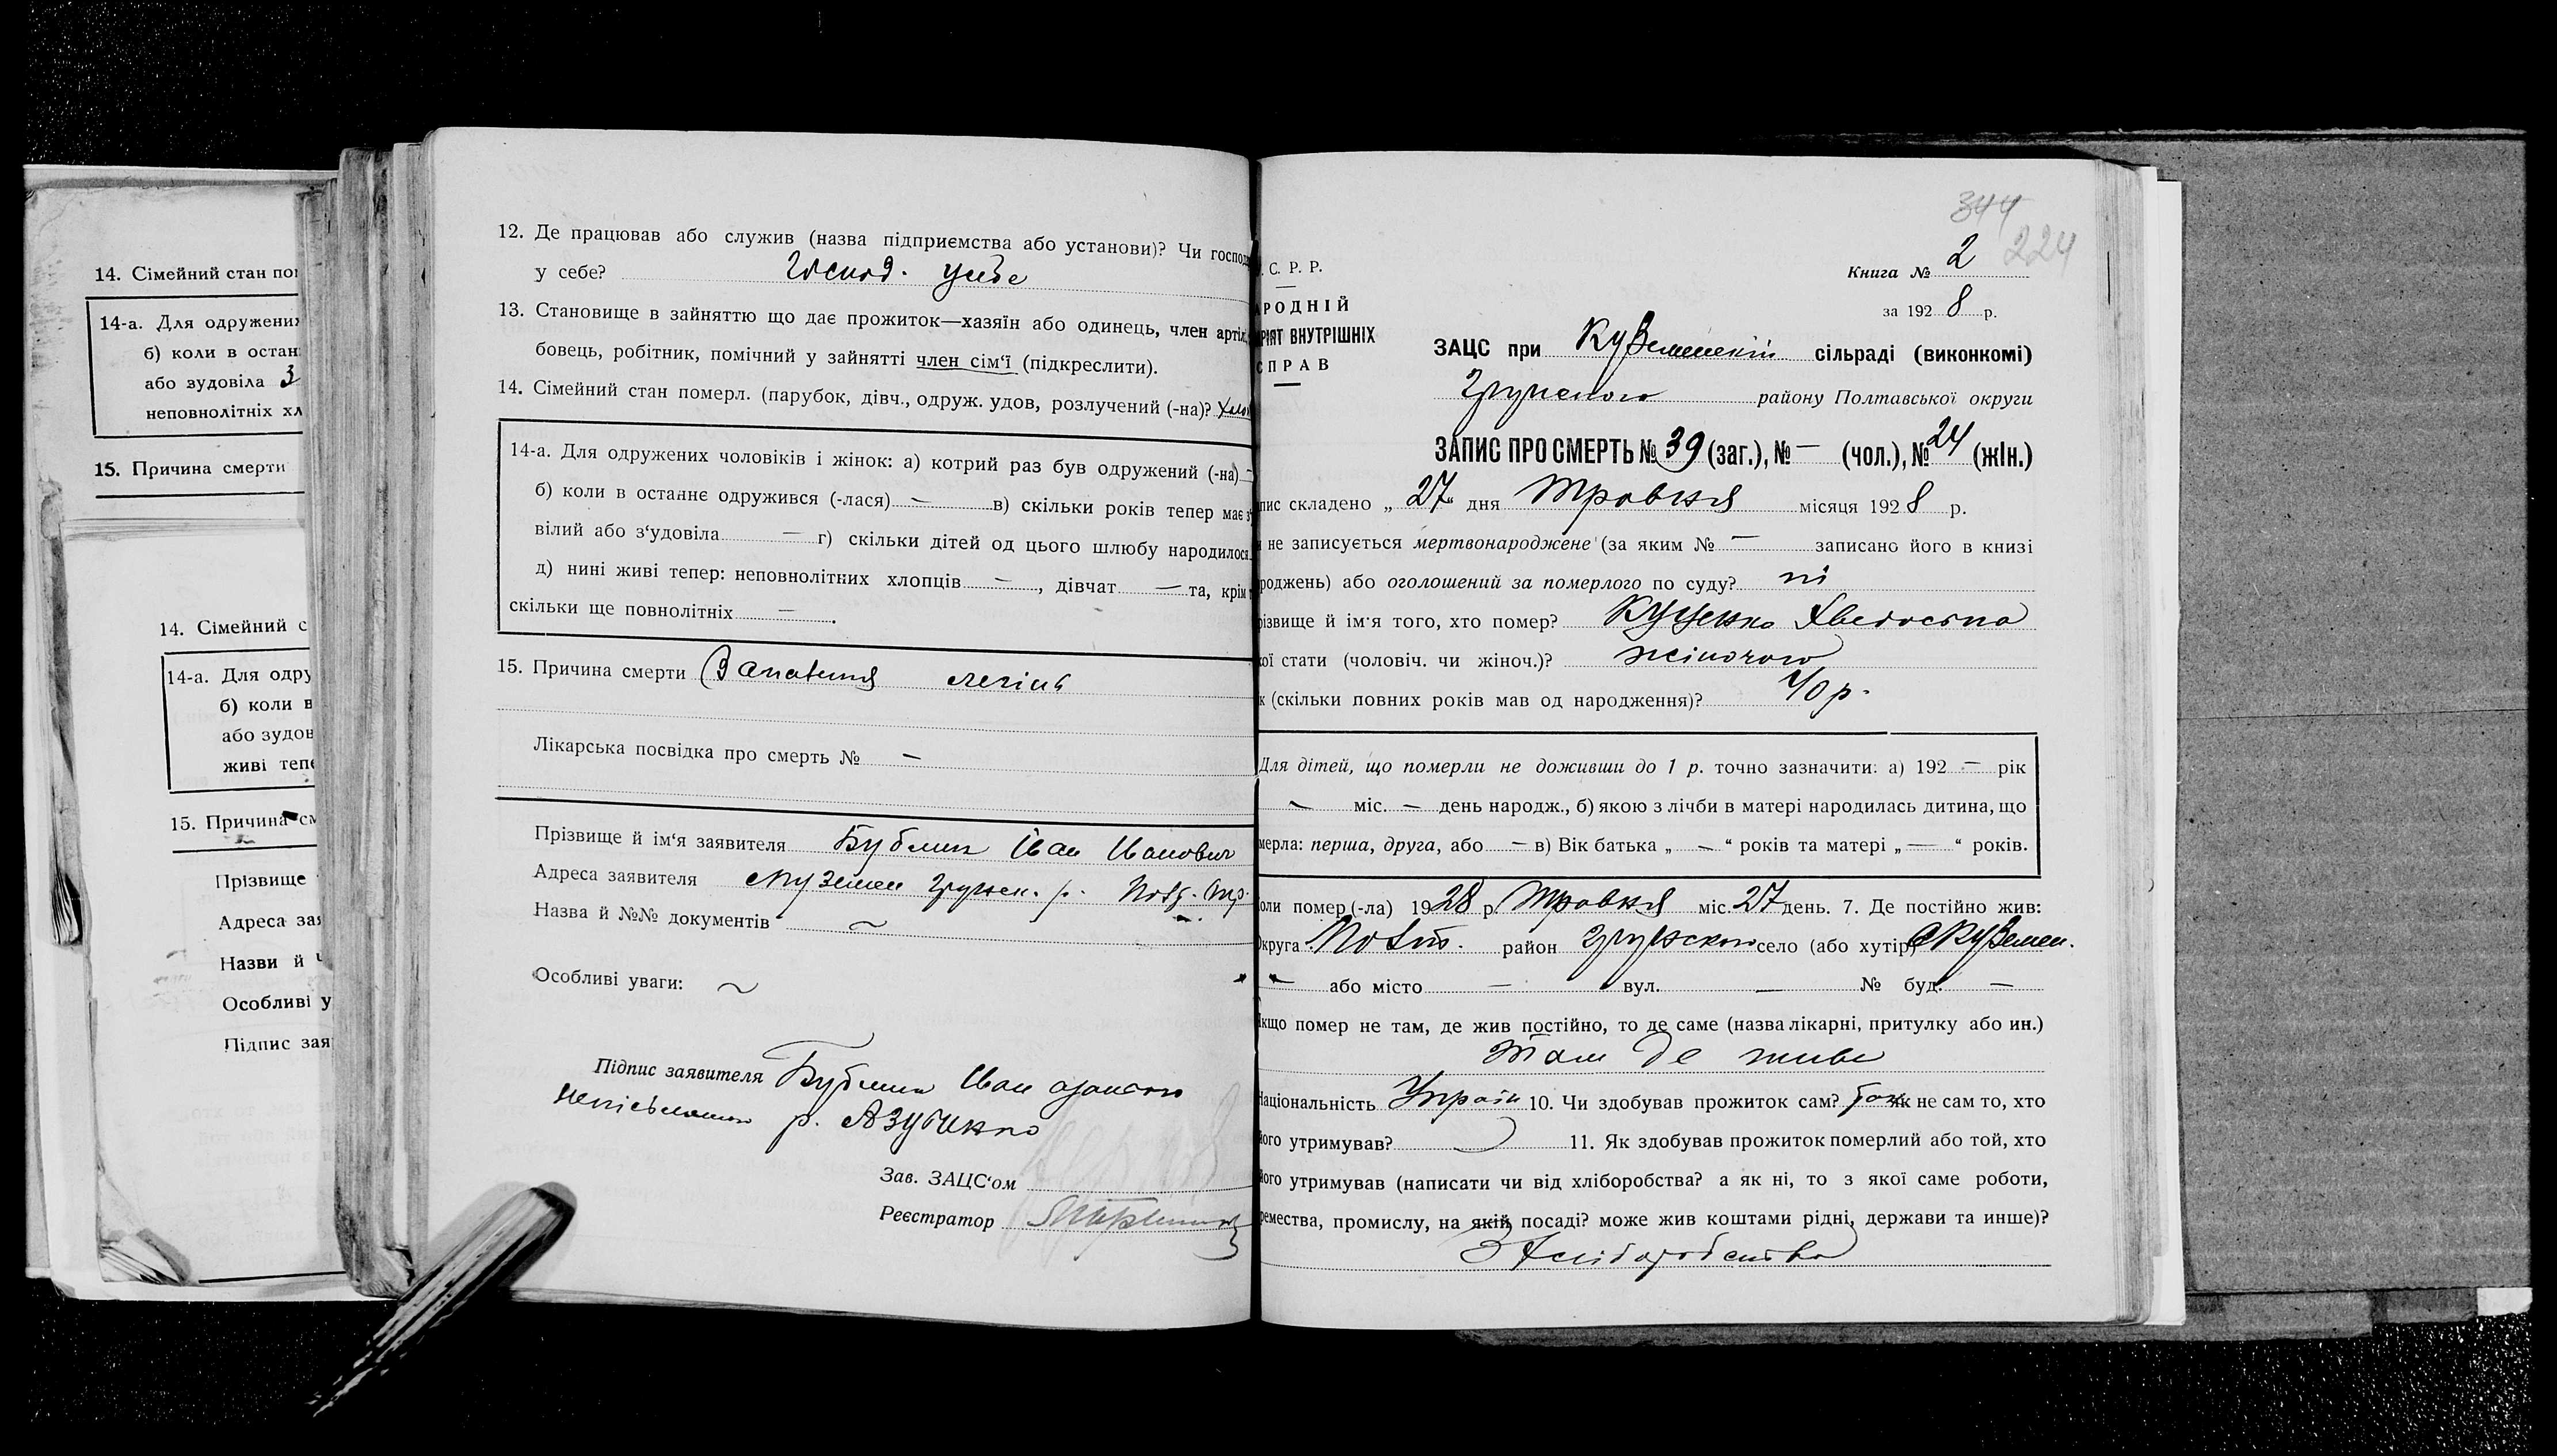 14. Сімейний стан пом
14-а. Для одружених
б) коли в остан
або зудовіла З
неповнолітніх хл
15. Причина смерти
14. Сімейний с
14-а. Для одру
б) коли в
або зудов
живі тепе
15. Причина см
Прізвище
Адреса зая
Назви й
Особливі у
Підпис зая
12. Де працював або служив (назва підприємства або установи)? Чи господ
у себе? Господ. у себе
13. Становище в зайняттю що дає прожиток—хазяїн або одинець, член артіл
бовець, робітник, помічний у зайнятті член сім‘ї (підкреслити).
14. Сімейний стан померл. (парубок, дівч., одруж. удов, розлучений (-на)?
14-а. Для одружених чоловіків і жінок: а) котрий раз був одружений (-на) —
б) коли в останнє одружився (-лася) — в) скільки років тепер має з‘
вілий або з‘удовіла — г) скільки дітей од цього шлюбу народилося
д) нині живі тепер: неповнолітких хлопців —, дівчат — та, крім т
скільки ще повнолітніх —.
15. Причина смерти Запалення легінь
Лікарська посвідка про смерть № —
Прізвище й ім‘я заявителя Бублик Іван Іванович
Адреса заявителя Куземен Грунск. р. Полт. окр.
Назва й №№ документів ~
Особливі уваги: ~
Підпис заявителя Бублик Іван
р.
Зав. ЗАЦС‘ом
Реєстратор
344
224
Книга № 2
за 192 8 р.
. С. Р. Р.
АРОДНІЙ
РІЯТ ВНУТРІШНІХ
СПРАВ
ЗАЦС при Куземенській сільраді (виконкомі)
Грунського району Полтавської округи
ЗАПИС ПРО СМЕРТЬ № 39 (заг.), № — (чол.), № 24 (жін.)
пис складено „ 27 “ дня Травня місяця 192 8 р.
и не записується мертвонароджене (за яким № — записано його в книзі
роджень) або оголошений за померлого по суду? ні
різвище й ім‘я того, хто помер? Куценко Хведосія
кої стати (чоловіч. чи жіноч.)? жіночого
к (скільки повних років мав од народження)? 40 р.
Для дітей, що померли не доживши до 1 р. точно зазначити: а) 192 — рік
— міс. — день народж., б) якою з лічби в матері народилась дитина, що
мерла: перша, друга, або — в) Вік батька „ — “ років та матері „ — “ років.
Коли помер (-ла) 1928 р. Травня міс. 27 день. 7. Де постійно жив:
Округа Полт. район Грунського село (або хутір) с Куземен.
— або місто — вул. — № буд. —
Якщо помер не там, де жив постійно, то де саме (назва лікарні, притулку або ин.)
там де живе
Національність Україн 10. Чи здобував прожиток сам? так як не сам то, хто
його утримував? 11. Як здобував прожиток померлий або той, хто
його утримував (написати чи від хліборобства? а як ні, то з якої саме роботи,
ремества, промислу, на якій посаді? може жив коштами рідні, держави та инше)?
З Хліборобства